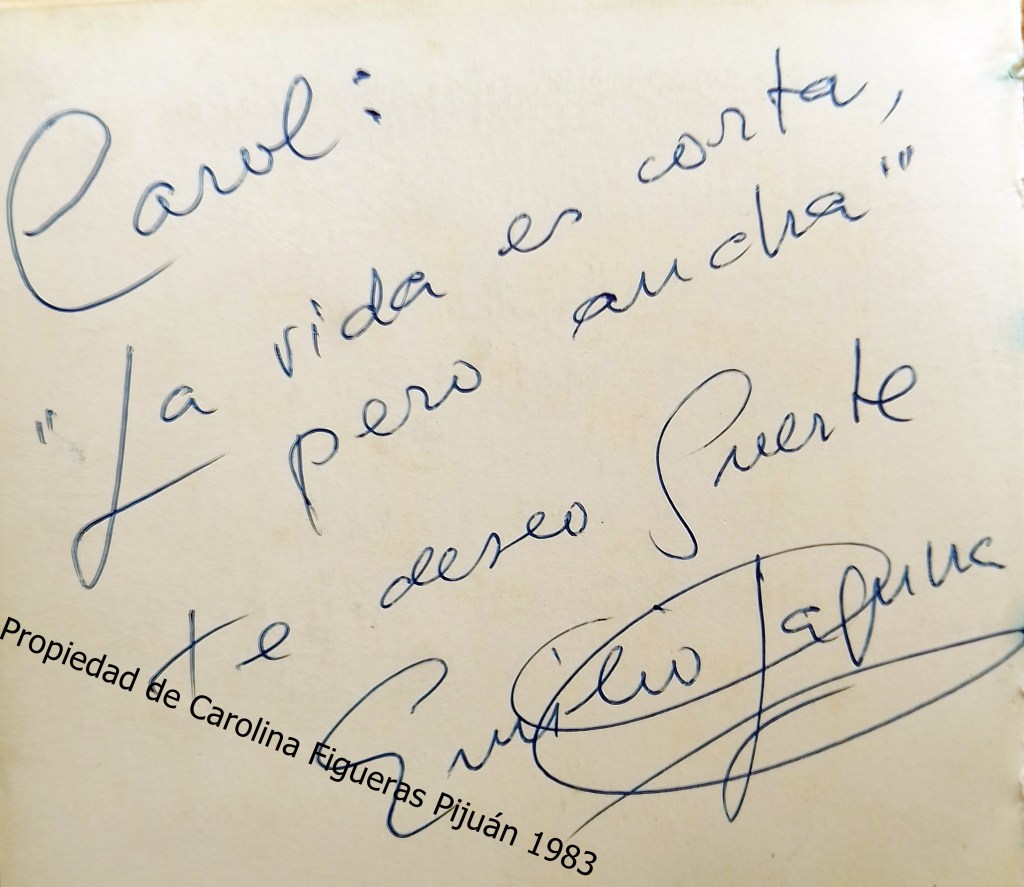 Carol:
"La vida es corta,
pero ancha"
te deseo Suerte
Emilio Laguna
Propiedad de Carolina Figueras Pijuán 1983